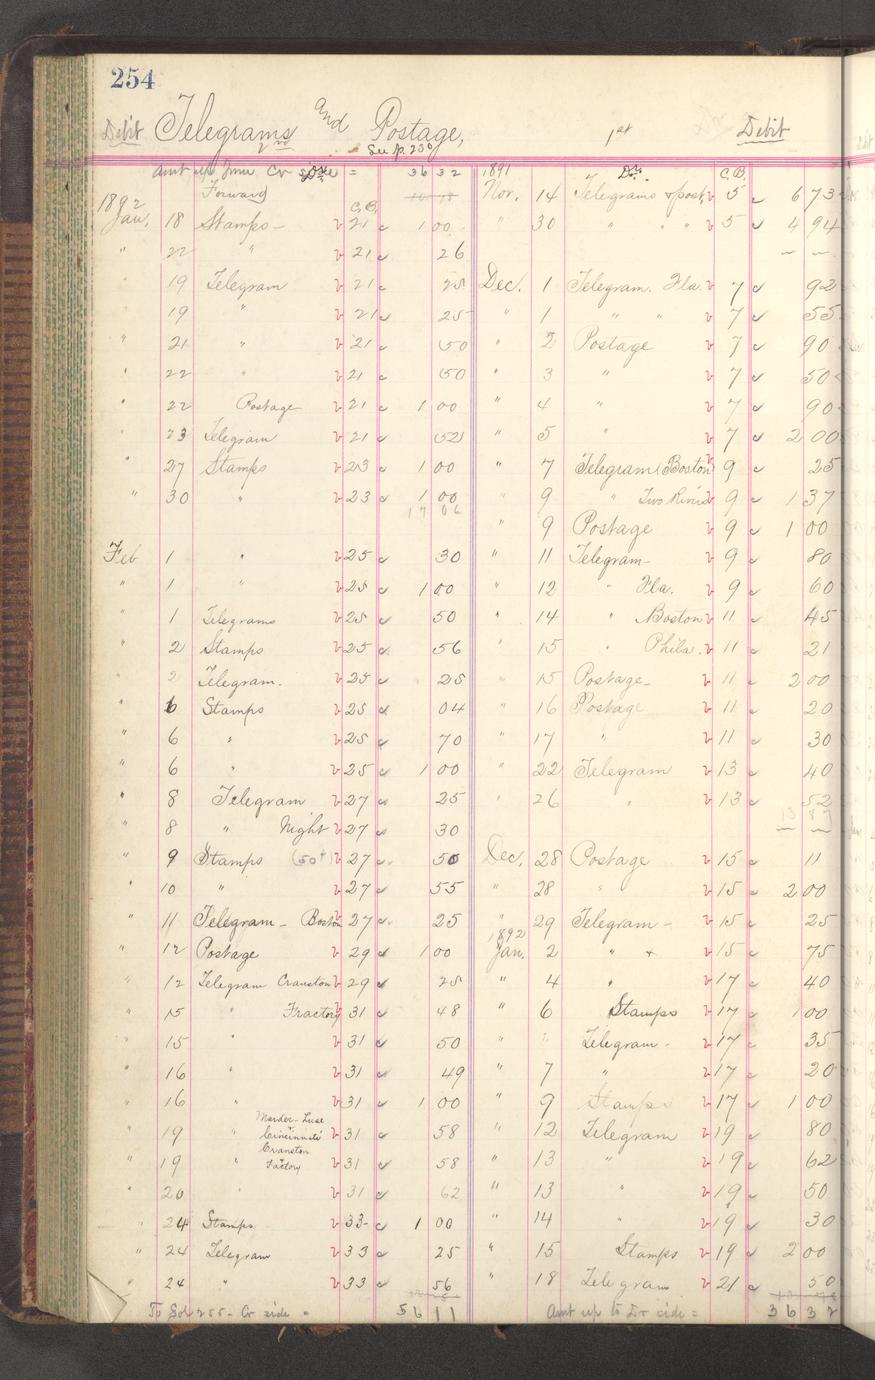 254
Debit Telegrams and Postage, 1st Debit
2nd See p. 230
Amt up from Cr side = 36 32
Forward
C.B.
1892
Jan. 18 Stamps - 21 1 00
" 22 " 21 26
" 19 Telegram 21 25
19 " 21 25
" 21 " 21 50
" 22 " 21 50
" 22 Postage 21 1 00
" 23 Telegram 21 52
" 27 Stamps 23 1 00
" 30 " 23 1 00
17 06
Feb 1 " 25 30
" 1 " 25 1 00
" 1 Telegrams 25 50
" 2 Stamps 25 56
" 2 Telegram. 25 25
" 6 Stamps 25 04
" 6 " 25 70
" 6 " 25 1 00
" 8 Telegram 27 25
" 8 " Night 27 30
" 9 Stamps 27 50
" 10 " 27 55
" 11 Telegram - Boston 27 25
" 12 Postage 29 1 00
" 12 Telegram Cranston 29 25
" 15 " Fractory 31 48
" 15 " 31 50
" 16 " 31 49
" 16 " 31 1 00
" 19 " Marder-Luse Cincinnati 31 58
" 19 " Cranston Factory 31 58
" 20 " 31 62
" 24 Stamps 33 1 00
" 24 Telegram 33 25
" 24 " 33 56
To Fol 255 - Cr side = 56 11
1891 Dr. C.B.
Nov. 14 Telegrams & post. 5 6 73
" 30 " " " 5 4 94
Dec. 1 Telegram. Fla. 7 92
" 1 " " 7 55
" 2 Postage 7 90
" 3 " 7 50
" 4 " 7 90
" 5 " 7 2 00
" 7 Telegram (Boston) 9 25
" 9 " Two Rivers 9 1 37
" 9 Postage 9 1 00
" 11 Telegram - 9 80
" 12 " Fla. 9 60
" 14 " Boston 11 45
" 15 " Phila. 11 21
" 15 Postage - 11 2 00
" 16 Postage 11 20
" 17 " 11 30
" 22 Telegram 13 40
" 26 " 13 52
Dec. 28 Postage 15 11
" 28 " 15 2 00
" 29 Telegram - 15 25
1892
Jan. 2 " + 15 75
" 4 " 17 40
" 6 Stamps 17 1 00
" " Telegram - 17 35
" 7 " 17 20
" 9 Stamps 17 1 00
" 12 Telegram 19 80
" 13 " 19 62
" 13 " 19 50
" 14 " 19 30
" 15 Stamps 19 2 00
" 18 Telegram 21 50
Amt up to Dr side = 36 32